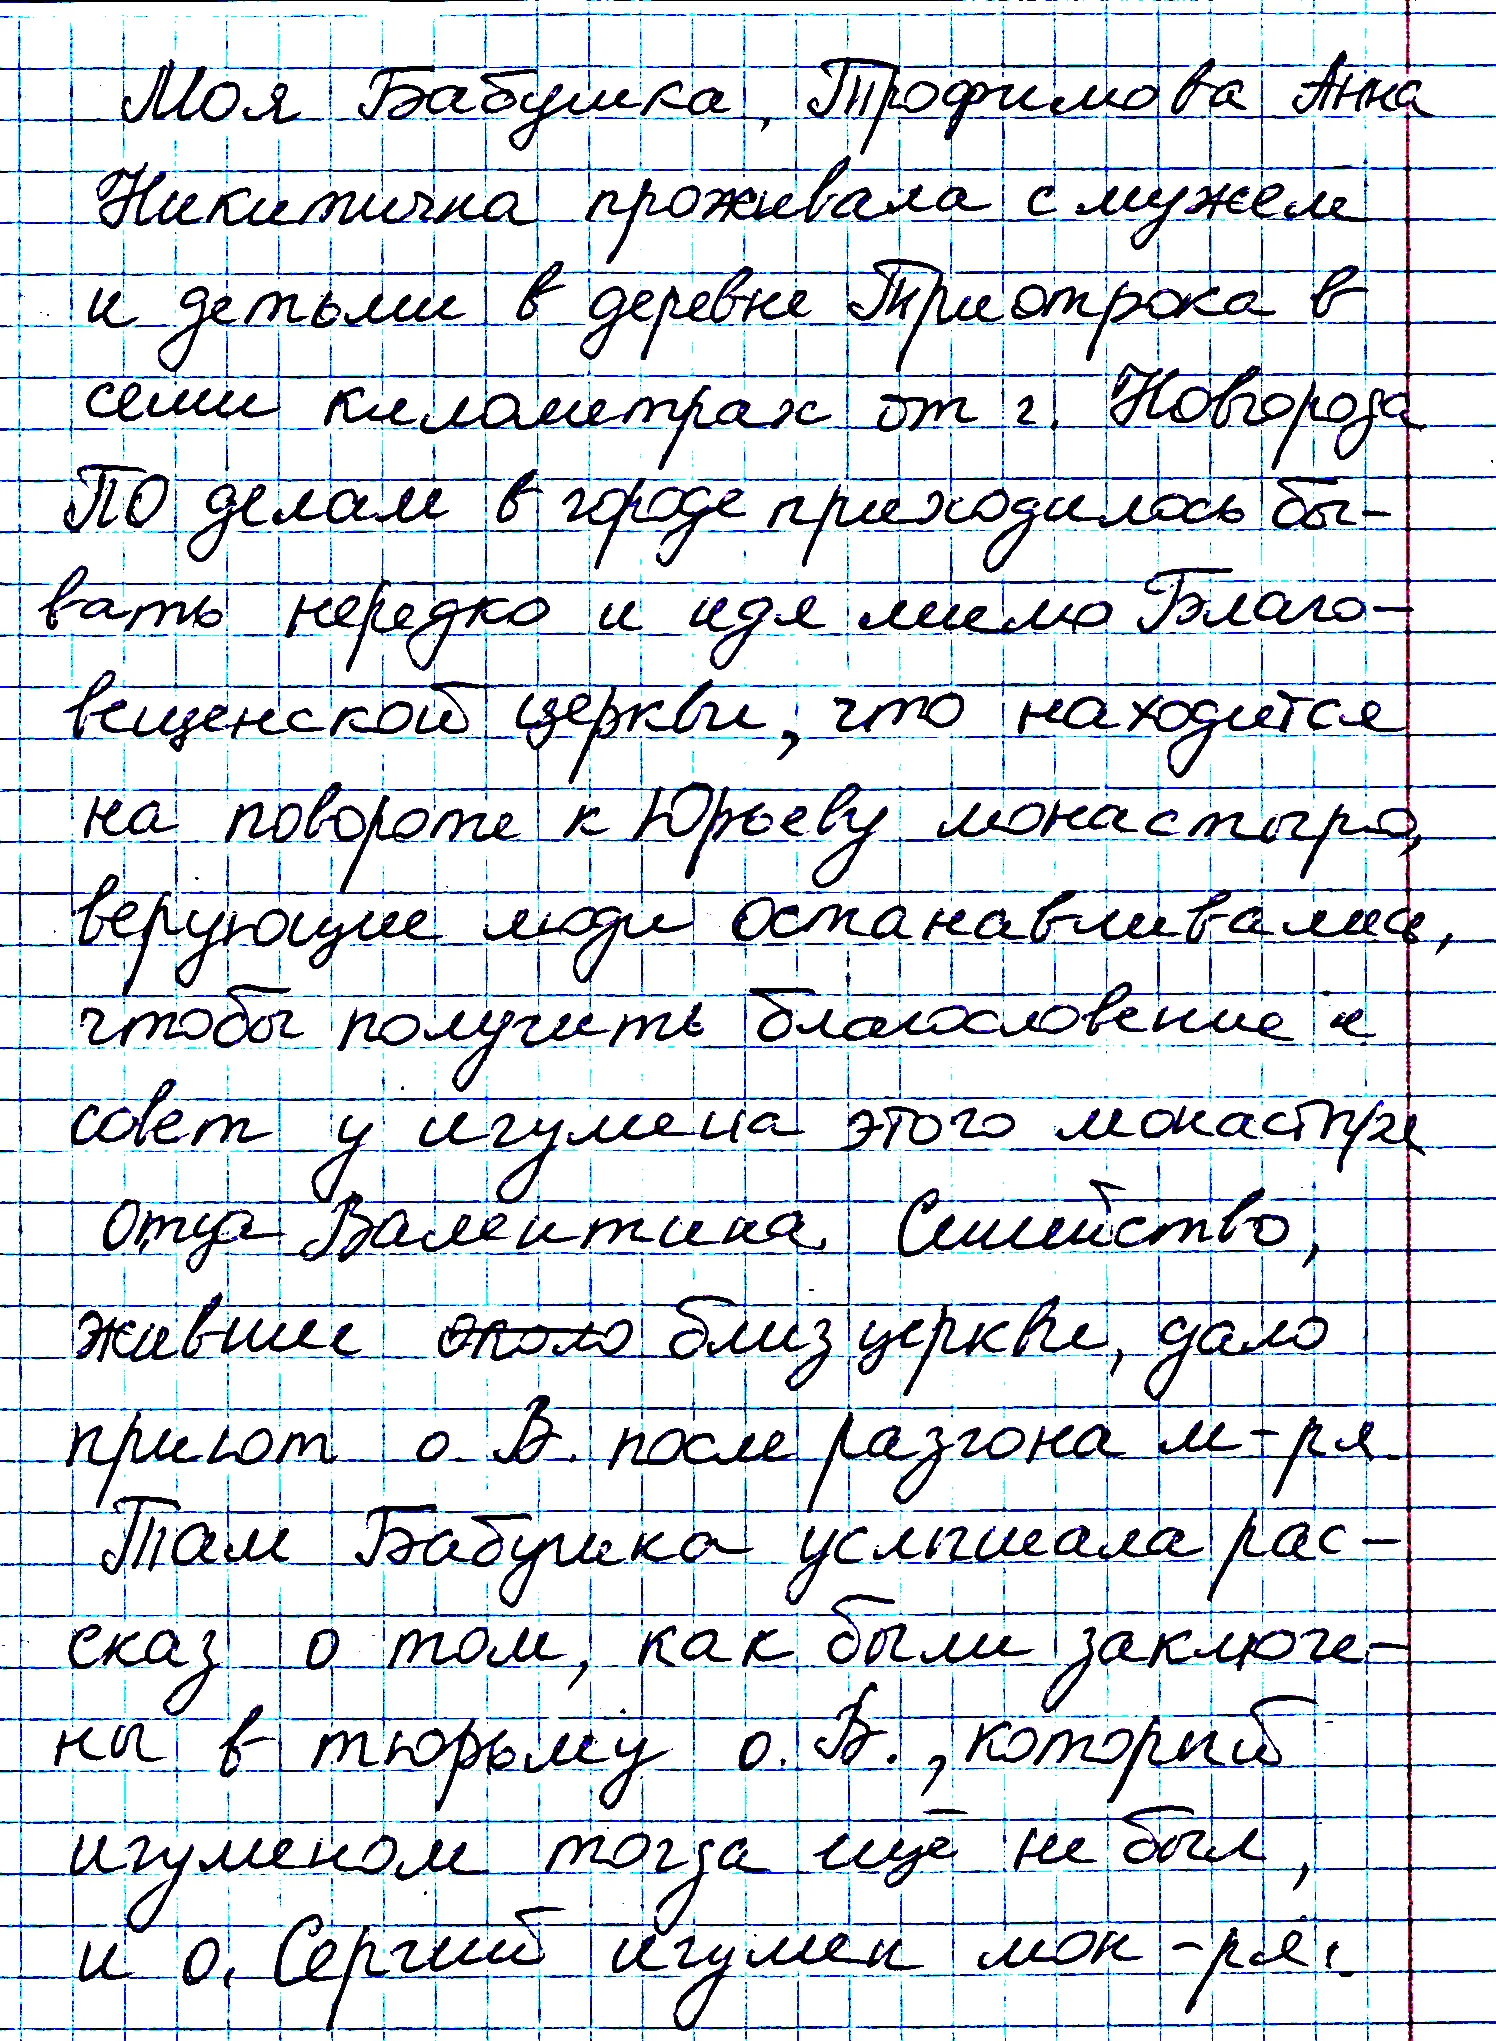 Моя Бабушка, Трофимова Анна
Никитична проживала с мужем
и детьми в деревне Триотрока в
семи километрах от г. Новгорода
ПО делам в городе приходилось бы-
вать нередко и идя мимо Благо-
вещенской церквы, что находится
на повороте к Юрьеву монастырю,
верующие люди останавливались,
чтобы получить благословение и
совет у игумена этого монастря
отца Валентина. Симейство,
жившие около близ церквы, дало
приют о. В. после разгона м-ря.
Там Бабушка услышала рас-
сказ о том, как были заключе-
ны в тюрьму о. В., который
игуменом тогда ещё не был,
и о. Сергий игумен мон-ря.